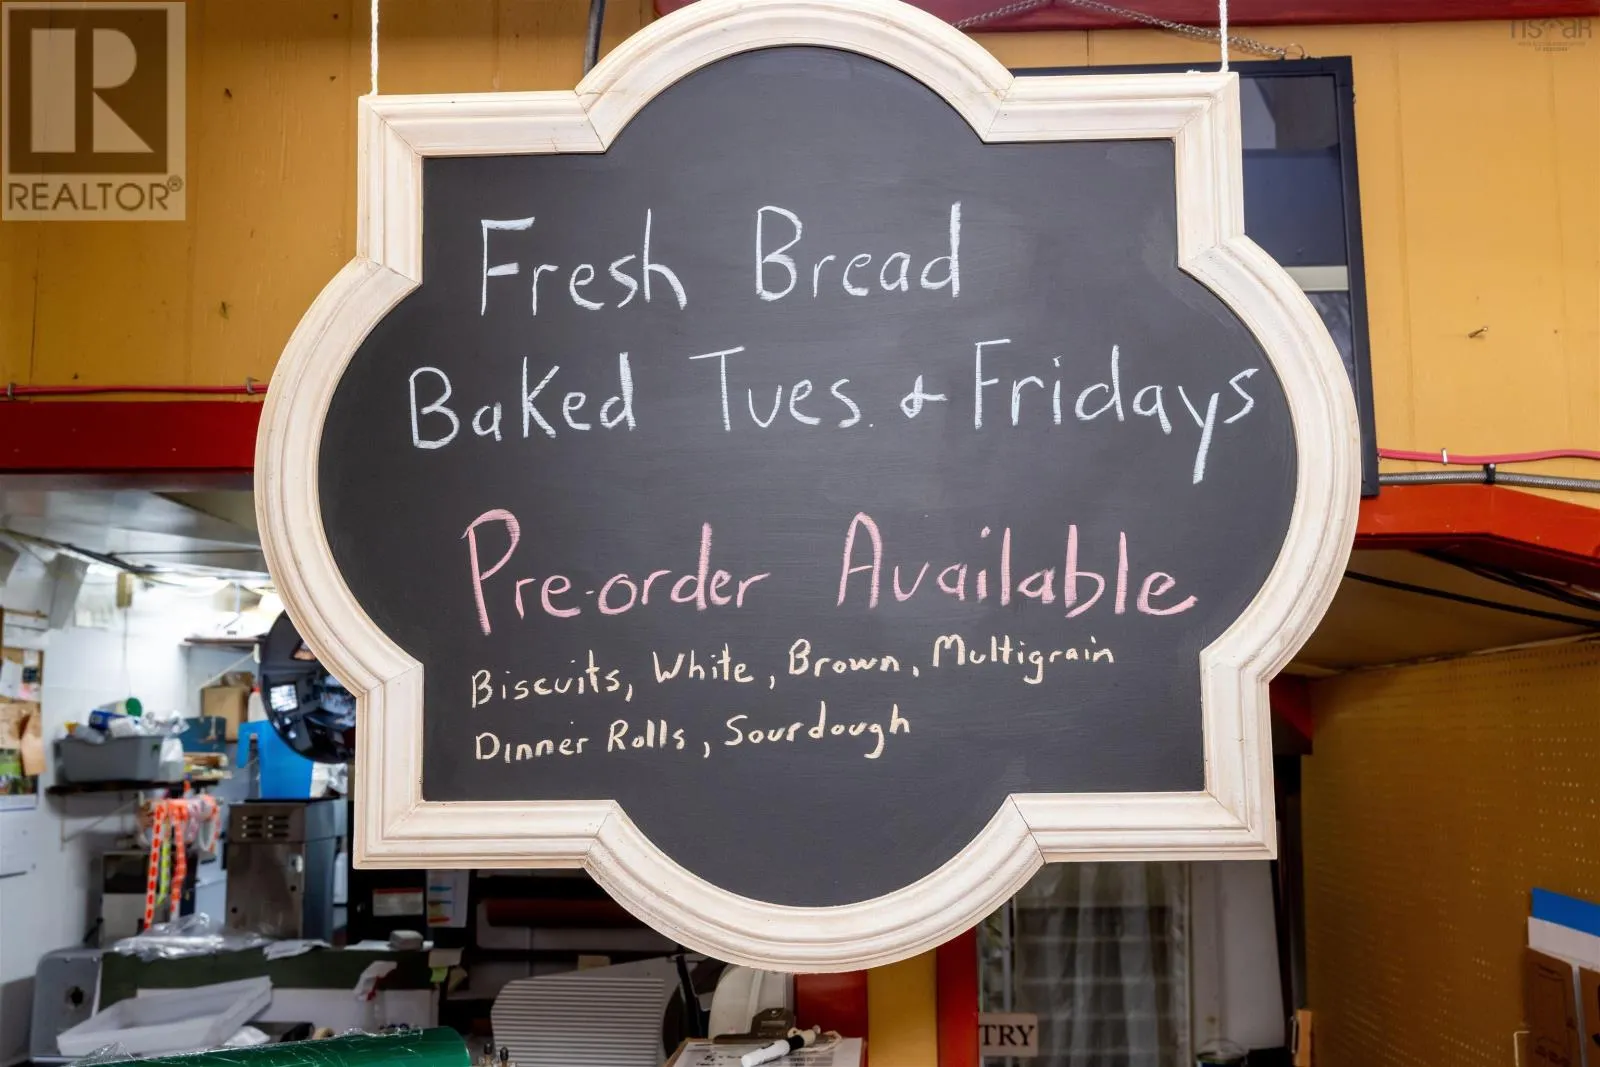 REALTOR®
Fresh Bread
Baked Tues. & Fridays
Pre-order Available
Biscuits, White, Brown, Multigrain
Dinner Rolls, Sourdough
TRY